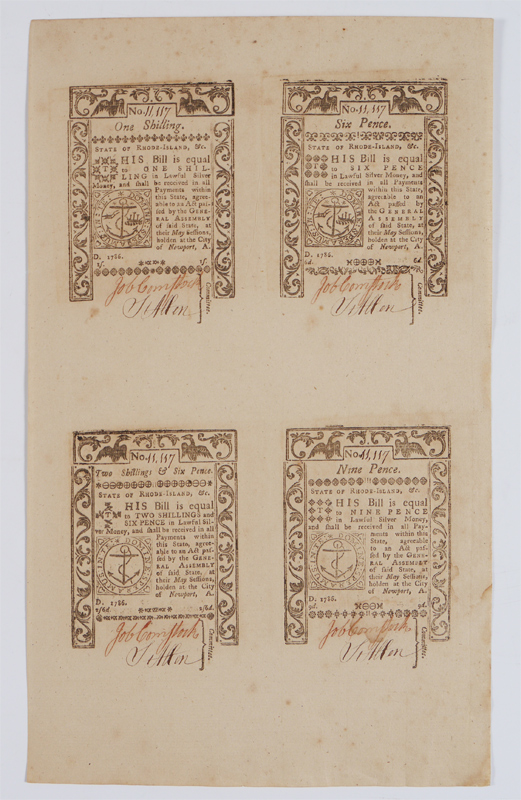 No. 11,117
One Shilling.
STATE OF RHODE-ISLAND, &c.
THIS Bill is equal
to ONE SHIL-
LING in Lawful Silver
Money, and shall be received in all
Payments within
this State, agree-
able to an Act pas-
sed by the GENE-
RAL ASSEMBLY
of said State, at
their May Sessions,
holden at the City
of Newport, A.
D. 1786.
1s. 1s.
Job Comstock
Committee.
No. 11,117
Six Pence.
STATE OF RHODE-ISLAND, &c.
THIS Bill is equal
to SIX PENCE
in Lawful Silver Money, and
shall be received in all Payments
within this State,
agreeable to an
Act passed by
the GENERAL
ASSEMBLY
of said State, at
their May Sessions,
holden at the City
of Newport, A.
D. 1786.
6d. 6d.
Job Comstock
Committee.
No. 11,117
Two Shillings & Six Pence.
STATE OF RHODE-ISLAND, &c.
THIS Bill is equal
to TWO SHILLINGS and
SIX PENCE in Lawful Sil-
ver Money, and shall be received in all
Payments within
this State, agree-
able to an Act pas-
sed by the GENE-
RAL ASSEMBLY
of said State, at
their May Sessions,
holden at the City
of Newport, A.
D. 1786.
2/6d. 2/6d.
Job Comstock
Committee.
No. 11,117
Nine Pence.
STATE OF RHODE-ISLAND, &c.
THIS Bill is equal
to NINE PENCE
in Lawful Silver Money,
and shall be received in all Pay-
ments within this
State, agreeable
to an Act pas-
sed by the GENE-
RAL ASSEMBLY
of said State, at
their May Sessions,
holden at the City
of Newport, A.
D. 1786.
9d. 9d.
Job Comstock
Committee.